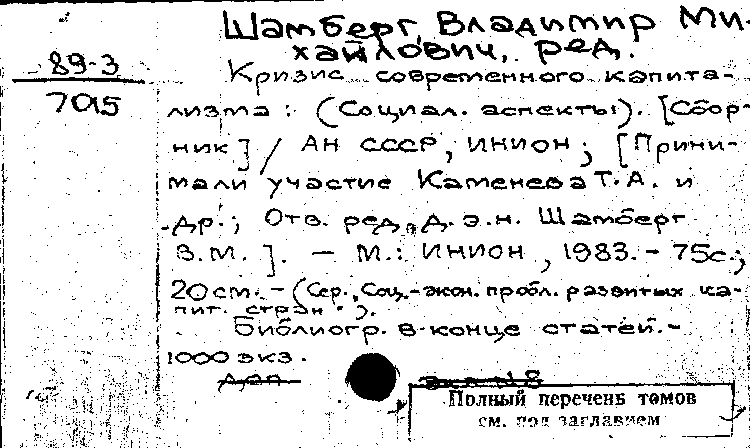 Шамберг, Владимир Ми-
хайлович, ред.
89-3
7015
Кризис современного капита-
лизма: (Социал. аспекты). [Сбор-
ник] / АН СССР, ИНИОН; [Прини-
мали участие Каменева Т.А. и
др.; Отв. ред. д.э.н. Шамберг
В.М.]. - М.: ИНИОН, 1983. - 75с.;
20 см. - (Сер., Соц.-экон. пробл. развитых ка-
пит. стран).
Библиогр. в конце статей. -
1000 экз.
№8
Полный перечень томов
см. под заглавием